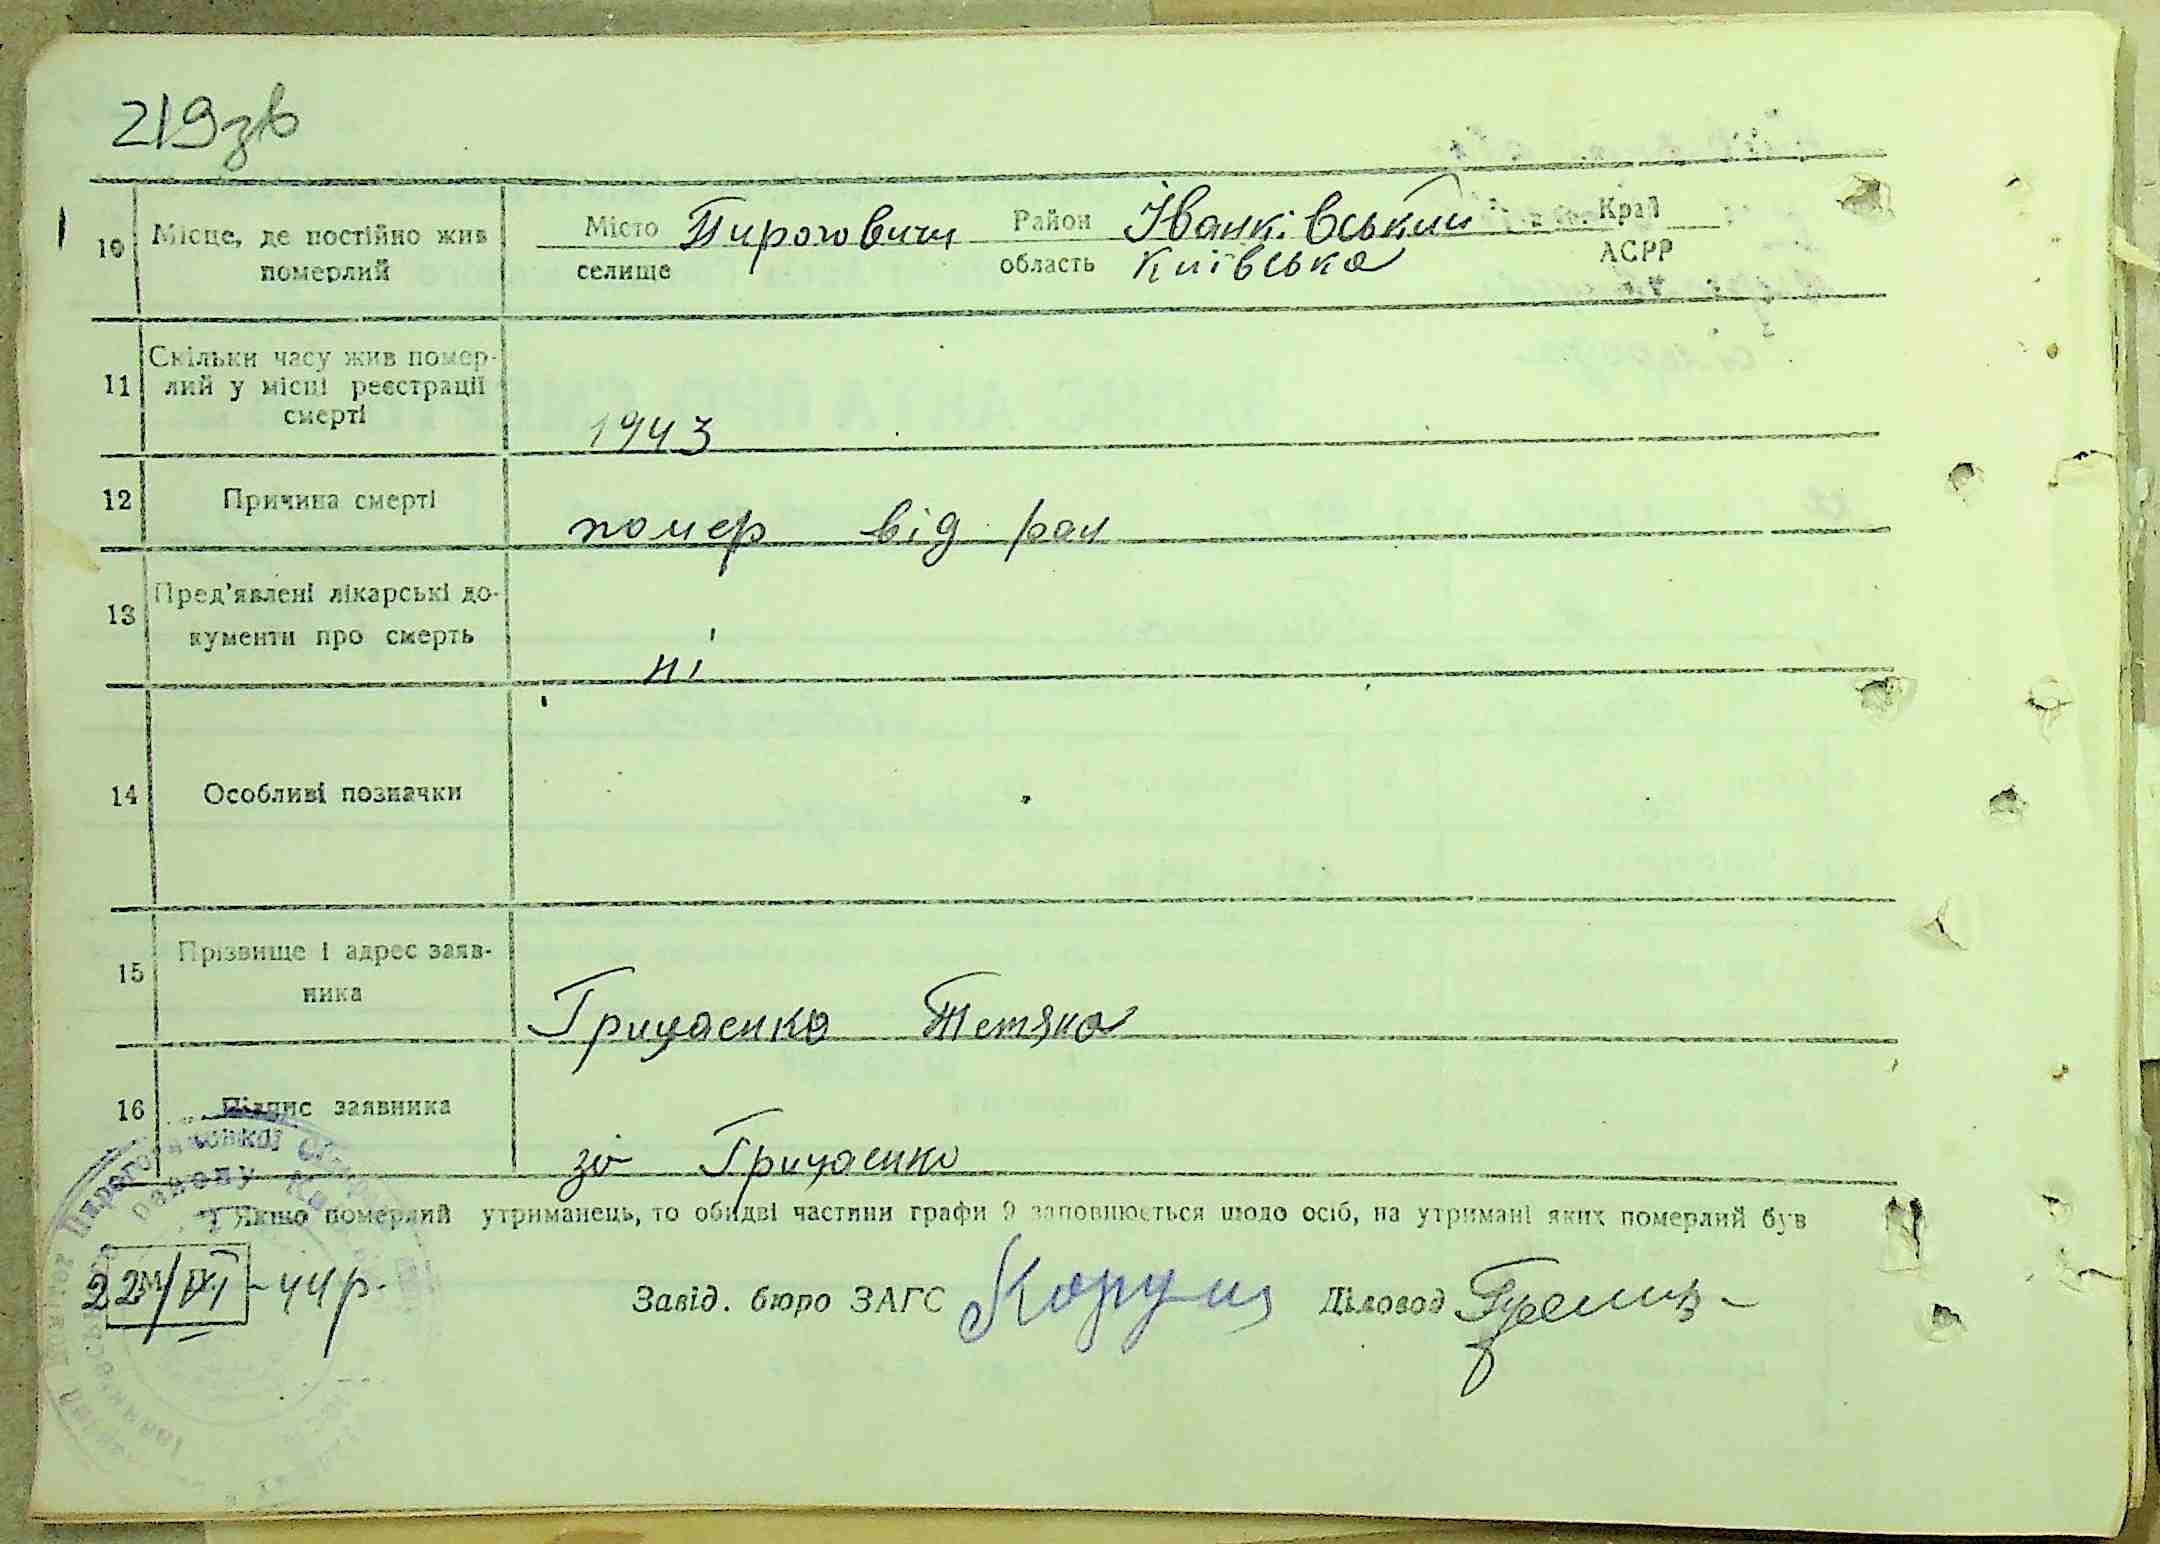 219зв
10 Місце, де постійно жив померлий
Місто Пироговичи Район Іванківський Край
селище область Київська АСРР
11 Скільки часу жив помер-
лий у місці реєстрації
смерті
1943
12 Причина смерті
помер від ран
13 Пред'явлені лікарські до-
кументи про смерть
ні
14 Особливі позначки
15 Прізвище і адрес заяв-
ника
Грицаенко Тетяна
16 Підпис заявника
за Грицаенко
Якщо померлий утриманець, то обидві частини графи 9 заповнюється щодо осіб, на утримані яких померлий був
22/XI-44р.
Завід. бюро ЗАГС Діловод